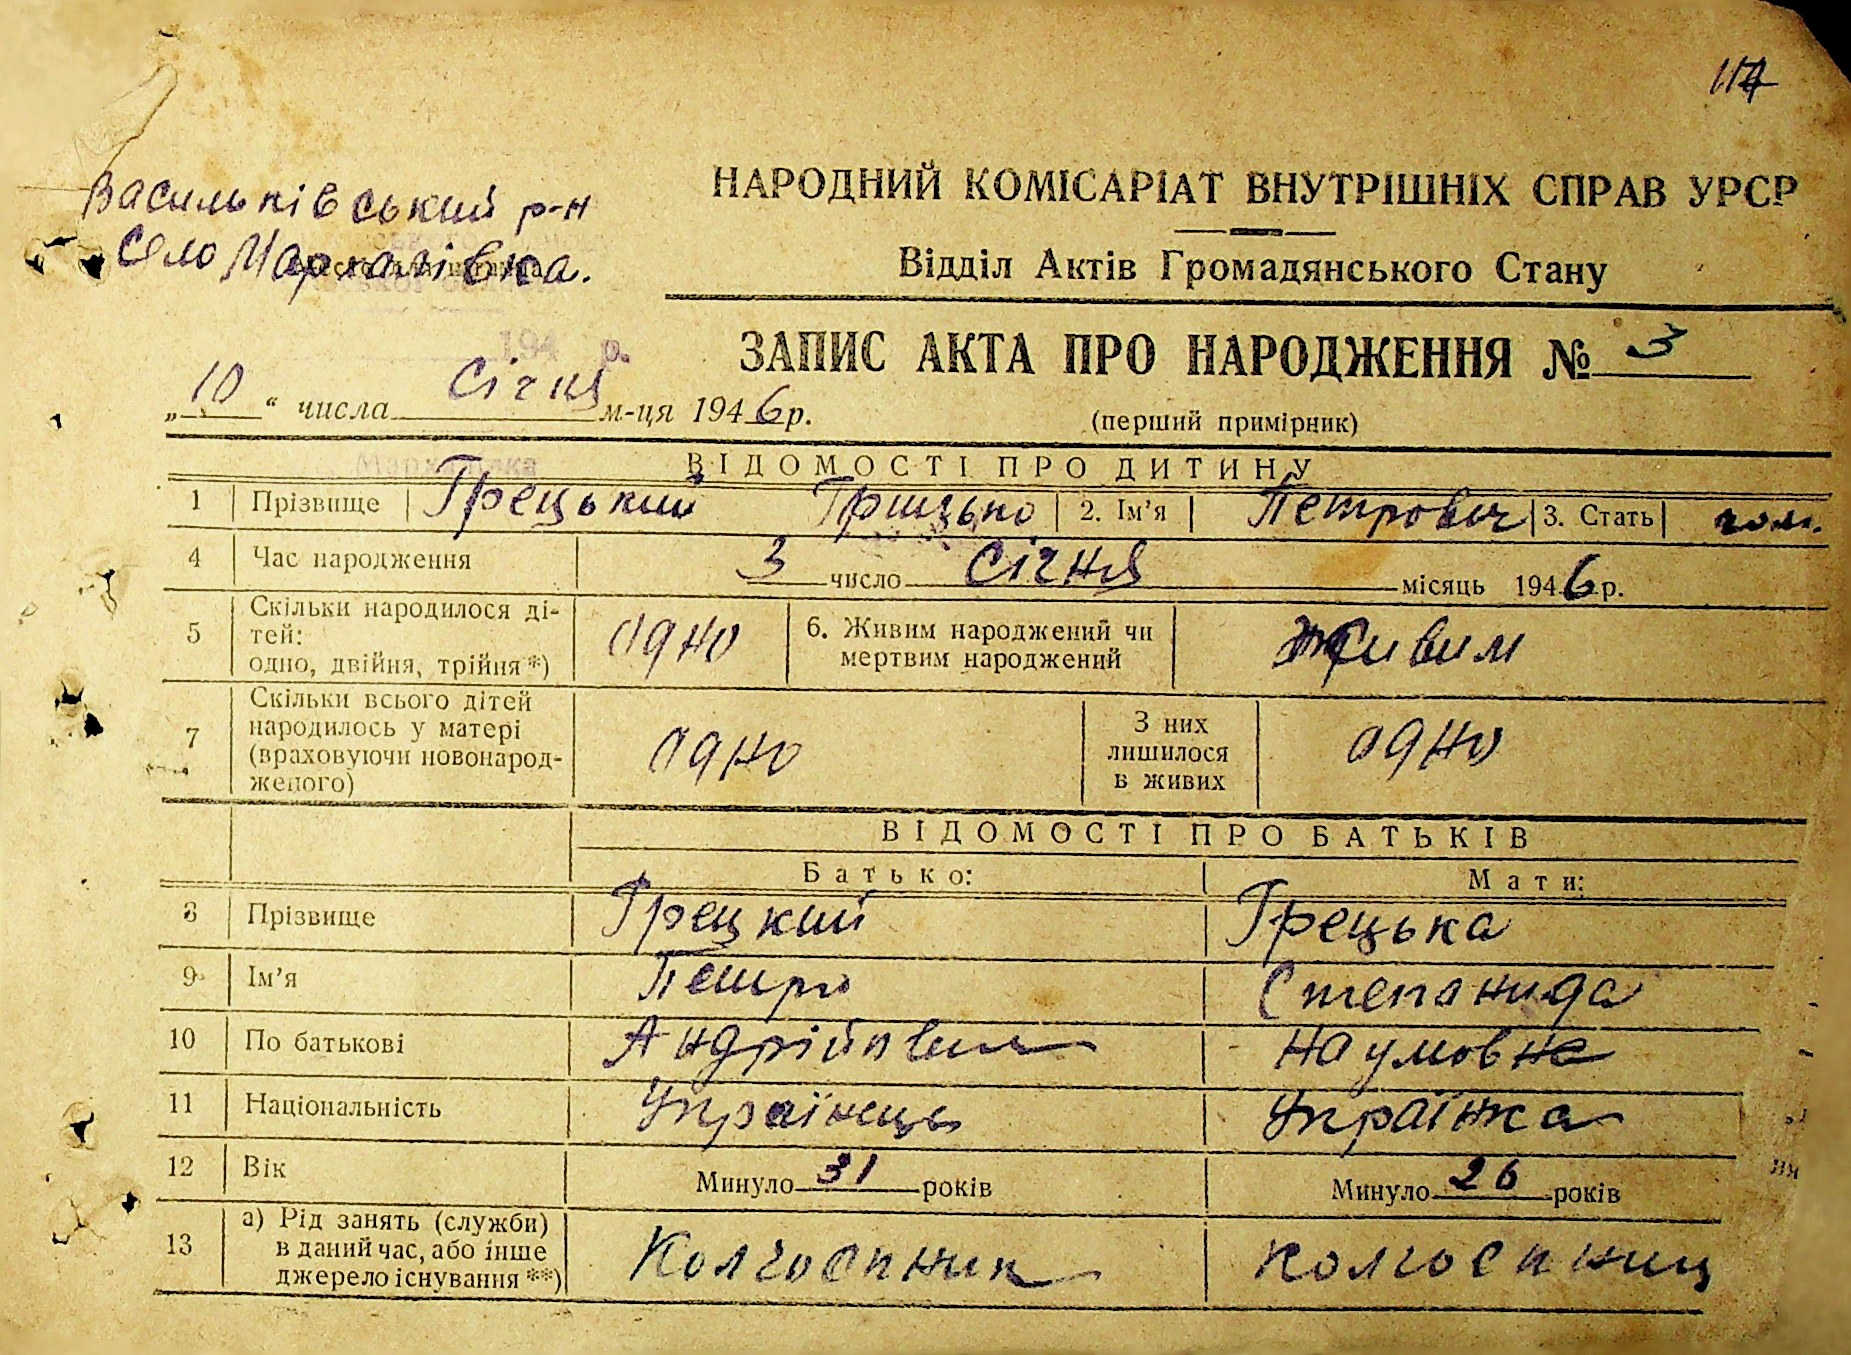 117
Васильківський р-н
село Мархалівка.
НАРОДНИЙ КОМІСАРІАТ ВНУТРІШНІХ СПРАВ УРСР
Відділ Актів Громадянського Стану
ЗАПИС АКТА ПРО НАРОДЖЕННЯ № 3
194 р.
„10“ числа Січня м-ця 1946 р.
(перший примірник)
Мархалівка
ВІДОМОСТІ ПРО ДИТИНУ
1 Прізвище Грецький Грицько 2. Ім’я Петрович 3. Стать чол.
4 Час народження 3 число Січня місяць 1946 р.
5 Скільки народилося ді-
тей:
одно, двійня, трійня *) одно
6. Живим народжений чи
мертвим народжений Живим
7 Скільки всього дітей
народилось у матері
(враховуючи новонарод-
женого) одно
З них
лишилося
в живих одно
ВІДОМОСТІ ПРО БАТЬКІВ
Батько: Мати:
8 Прізвище Грецкий Грецька
9 Ім’я Петро Степанида
10 По батькові Андрійович Наумовна
11 Національність Українець Українка
12 Вік Минуло 31 років Минуло 26 років
13 а) Рід занять (служби)
в даний час, або інше
джерело існування **) Колгоспник колгоспниц